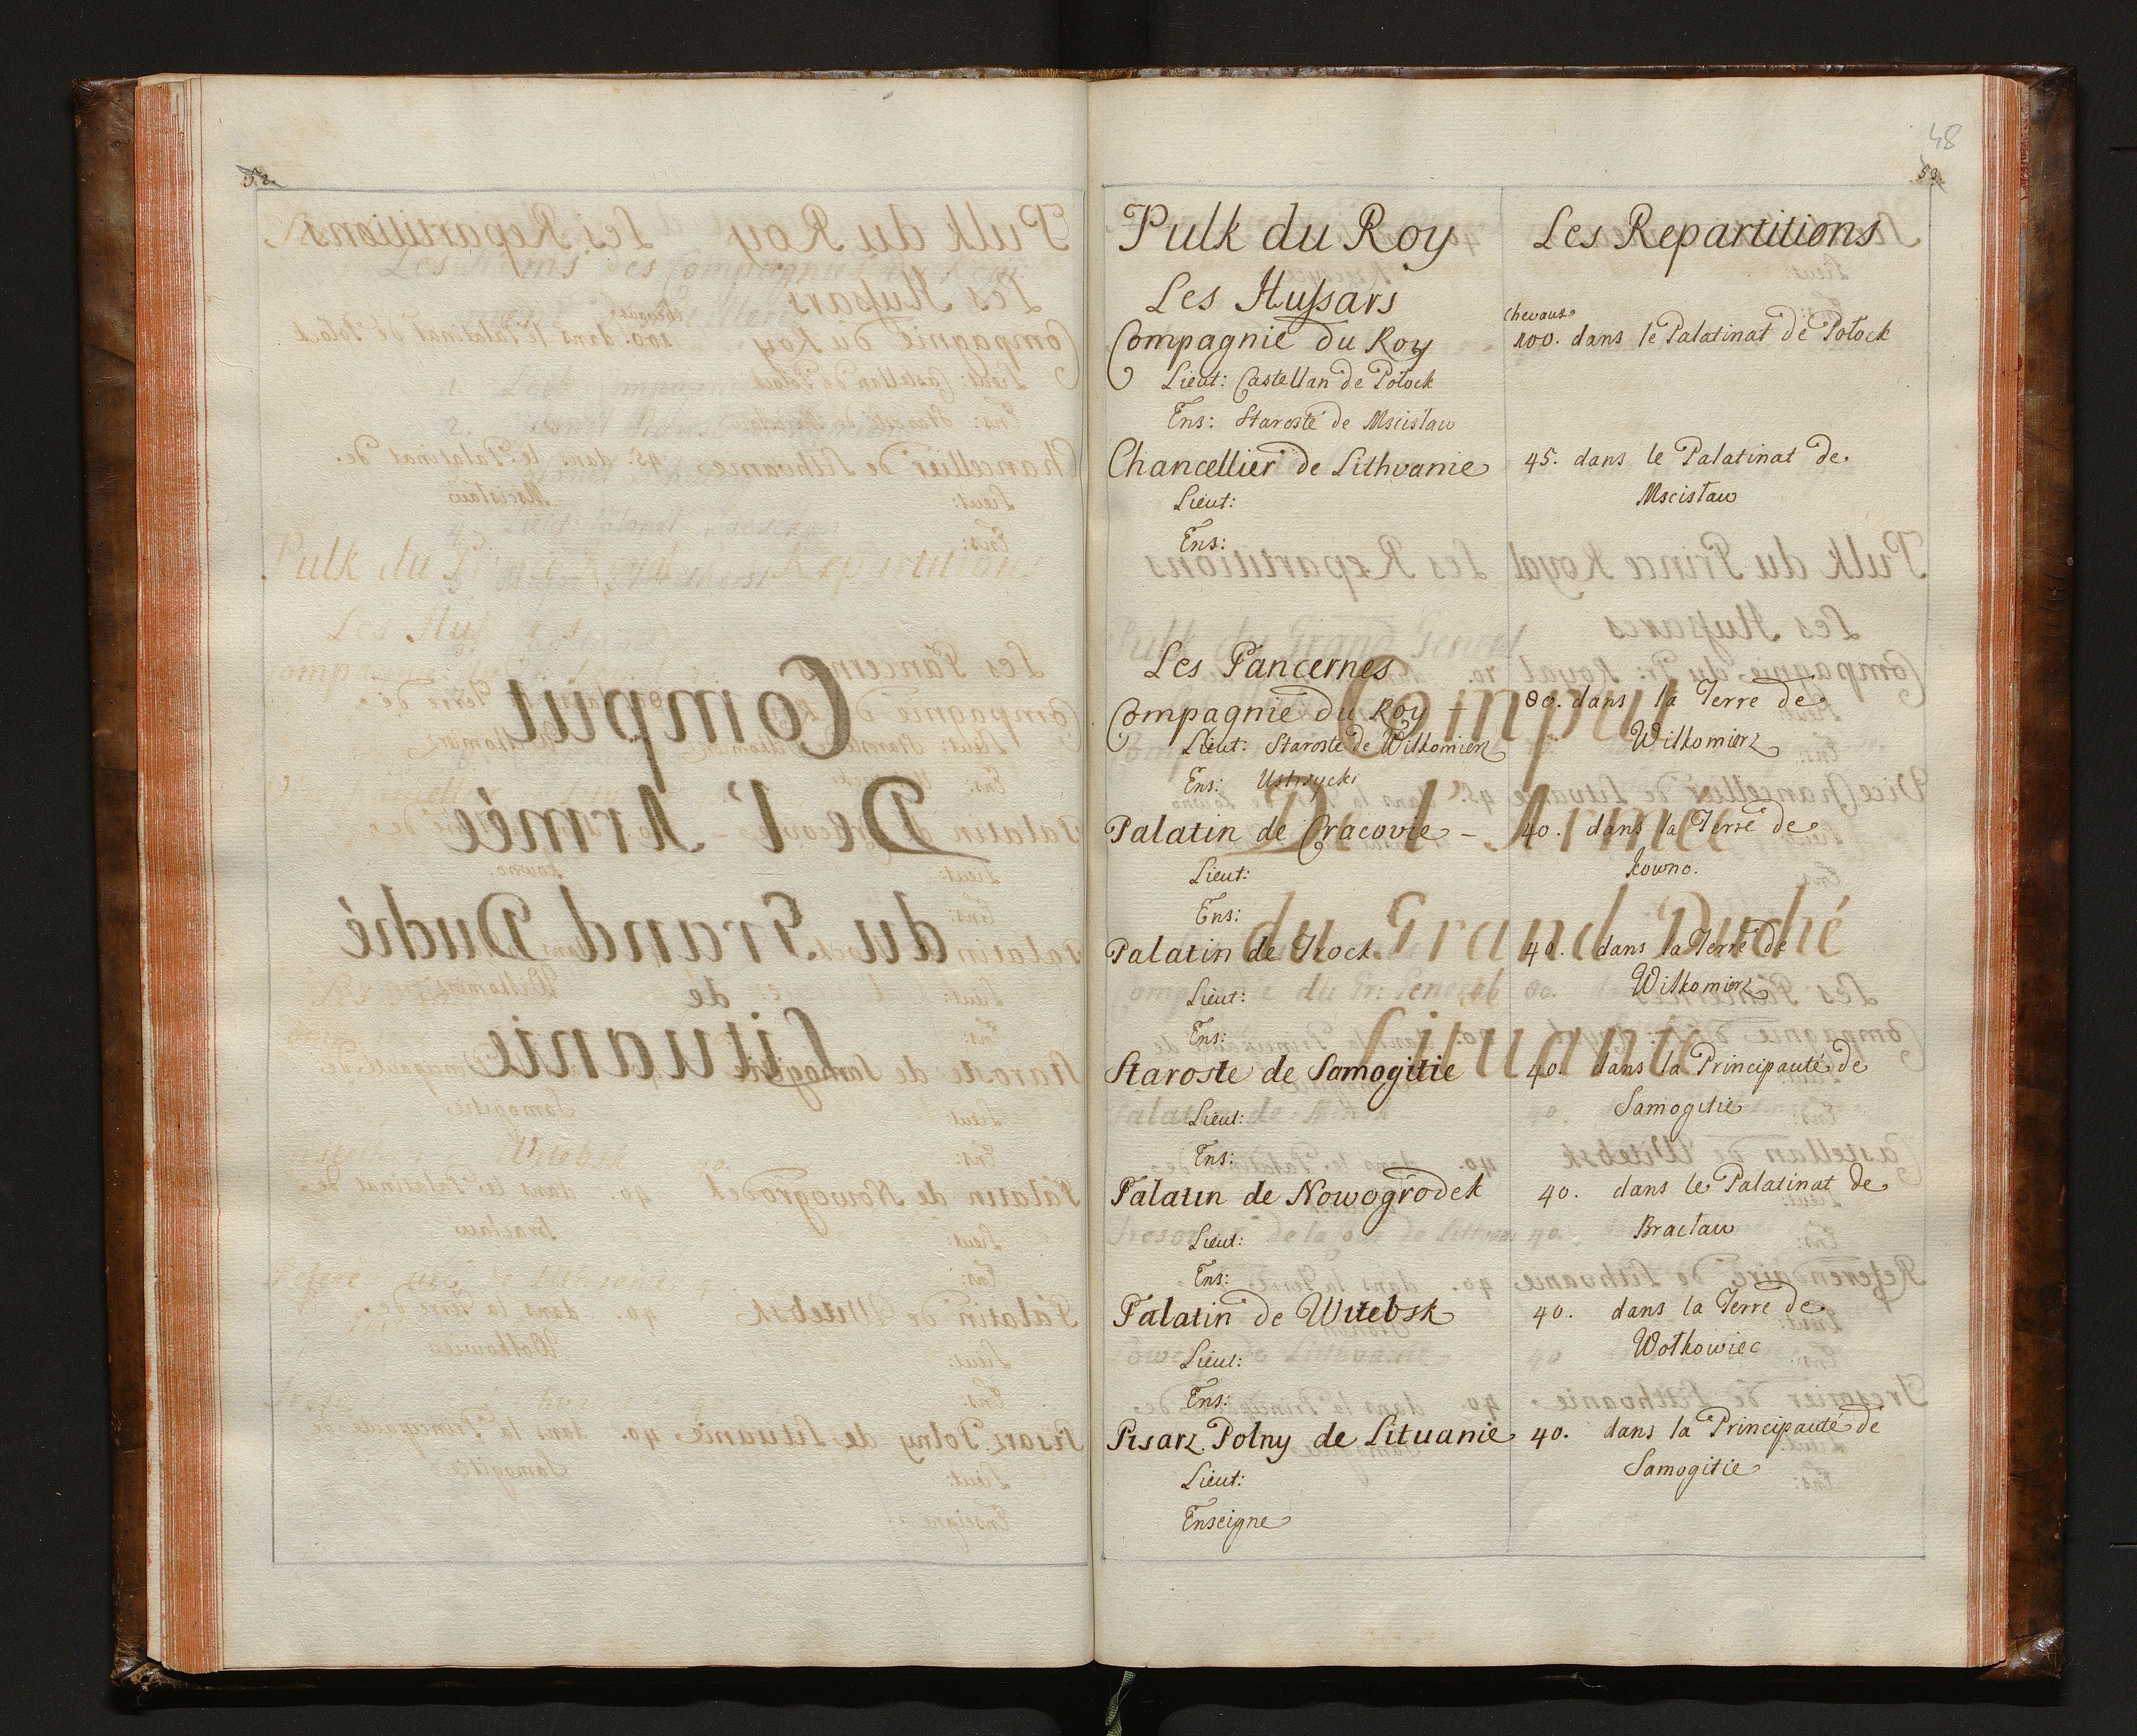 52.
48
53.
Pulk du Roy Les Repartitions
Les Hussars
chevaux
Compagnie du Roy 100. dans le Palatinat de Połock
Lieut: Castellan de Połock
Ens: Staroste de Mscisław
Chancellier de Lithvanie 45. dans le Palatinat de
Lieut: Mscisław
Ens:
Les Pancernes
Compagnie du Roy - 80. dans la Terre de
Lieut: Staroste de Wiłkomierz Wiłkomierz
Ens: Ustrzycki
Palatin de Cracovie - 40. dans la Terre de
Lieut: Kowno.
Ens:
Palatin de Trock 40. dans la Terre de
Lieut: Wiłkomierz
Ens:
Staroste de Samogitie 40. dans la Principauté de
Lieut: Samogitie
Ens:
Palatin de Nowogrodek 40. dans le Palatinat de
Lieut: Bracław
Ens:
Palatin de Witebsk 40. dans la Terre de
Lieut: Wołkowiec
Ens:
Pisarz Polny de Lituanie 40. dans la Principauté de
Lieut: Samogitie
Enseigne